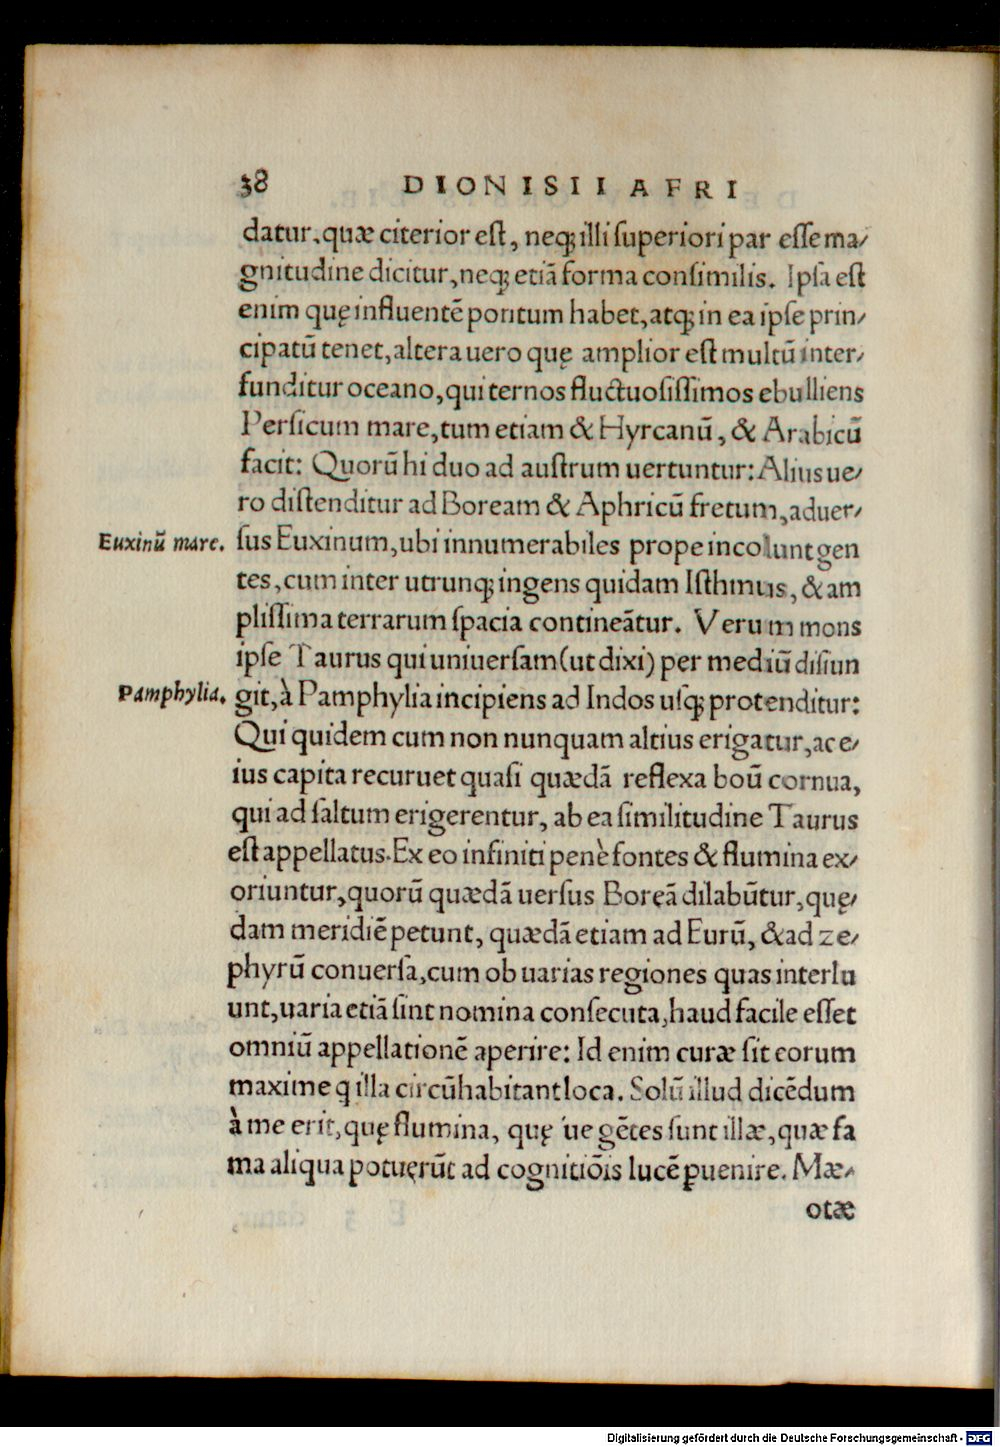 38 DIONISII AFRI
datur, quæ citerior est, neq; illi superiori par esse ma/
gnitudine dicitur, neq; etiã forma consimilis. Ipsa est
enim quę influentẽ pontum habet, atq; in ea ipse prin/
cipatũ tenet, altera uero quę amplior est multũ inter/
funditur oceano, qui ternos fluctuosissimos ebulliens
Persicum mare, tum etiam & Hyrcanũ, & Arabicũ
facit: Quorũ hi duo ad austrum uertuntur: Alius ue/
ro distenditur ad Boream & Aphricũ fretum, aduer/
Euxinũ mare. sus Euxinum, ubi innumerabiles prope incolunt gen
tes, cum inter utrunq; ingens quidam Isthmus, & am
plissima terrarum spacia contineãtur. Verum mons
ipse Taurus qui uniuersam (ut dixi) per mediũ disiun
Pamphylia. git, à Pamphylia incipiens ad Indos usq; protenditur:
Qui quidem cum non nunquam altius erigatur, ac e/
ius capita recuruet quasi quædã reflexa boũ cornua,
qui ad saltum erigerentur, ab ea similitudine Taurus
est appellatus. Ex eo infiniti penè fontes & flumina ex/
oriuntur, quorũ quædã uersus Boreã dilabũtur, quę/
dam meridiẽ petunt, quædã etiam ad Eurũ, & ad ze/
phyrũ conuersa, cum ob uarias regiones quas interlu
unt, uaria etiã sint nomina consecuta, haud facile esset
omniũ appellationẽ aperire: Id enim curæ sit eorum
maxime q illa circũhabitant loca. Solũ illud dicẽdum
à me erit, quę flumina, quę ue gẽtes sunt illæ, quæ fa
ma aliqua potuęrũt ad cognitiõis lucẽ ꝑuenire. Mæ/
otæ
Digitalisierung gefördert durch die Deutsche Forschungsgemeinschaft - DFG